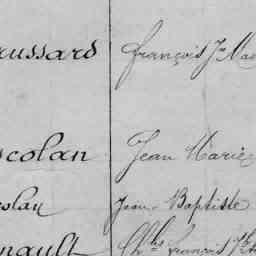 russard françois Jn Mar
scolan Jean Marie
colau Jean Baptiste
nault Chles françois